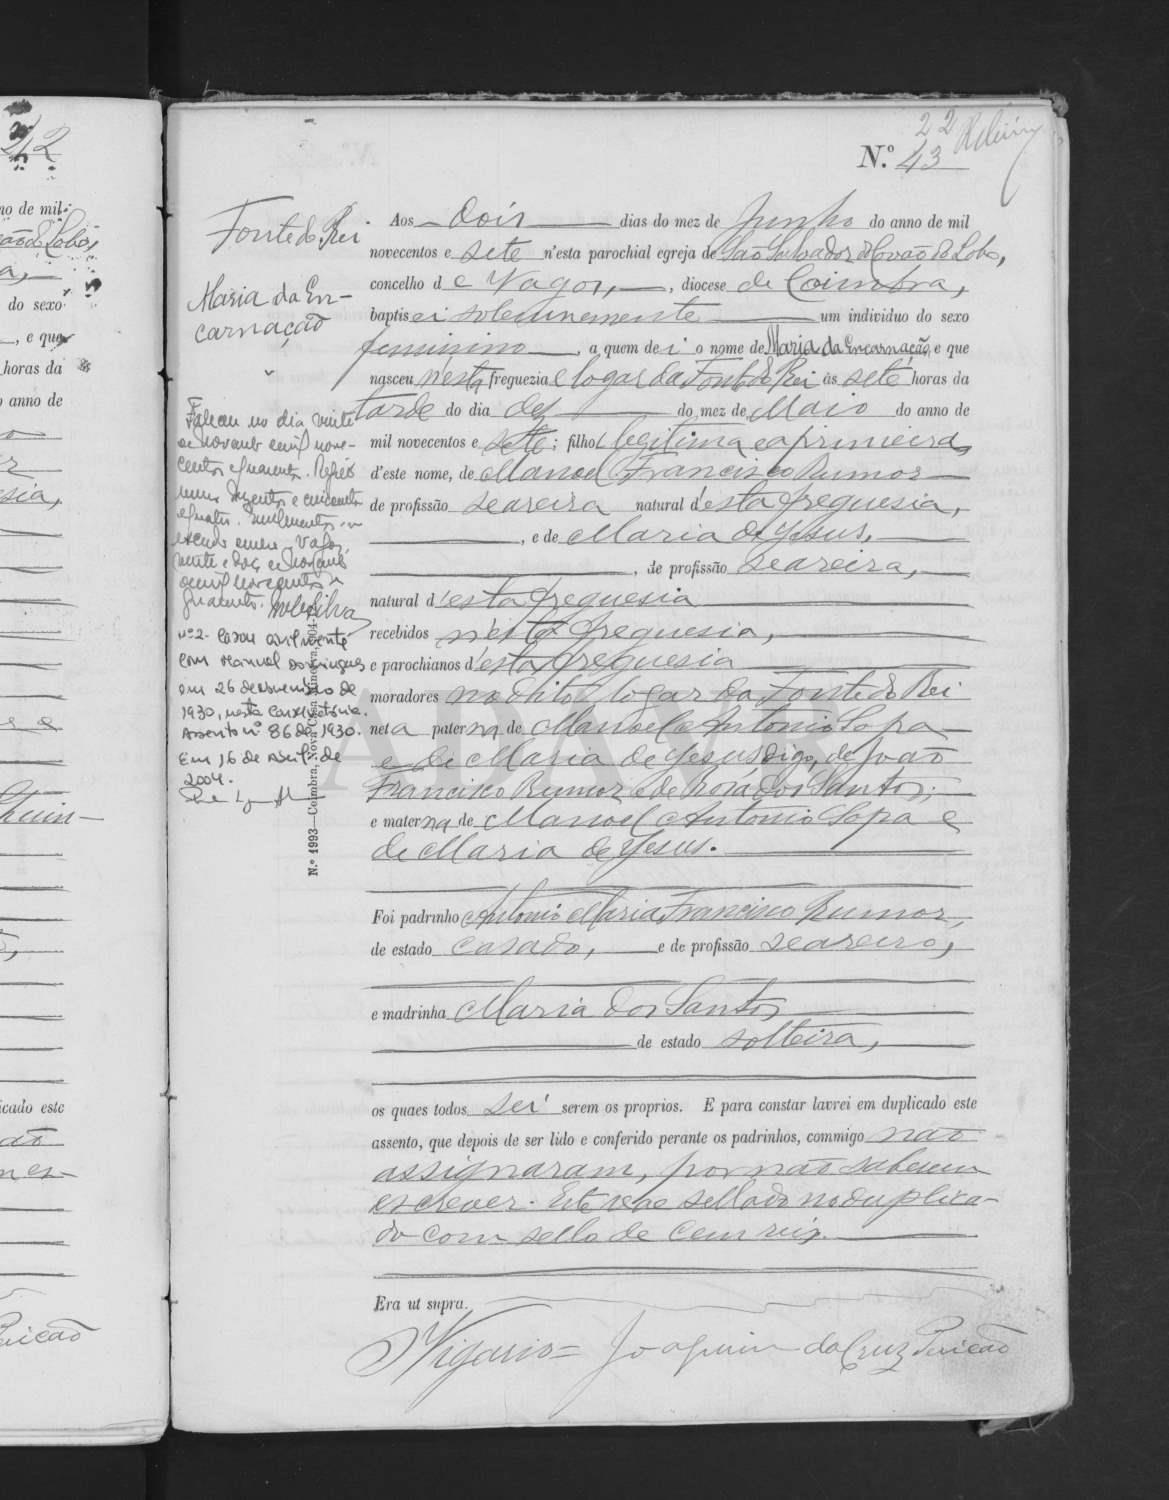 22
N.º 43
Fonte do Rei
Maria da En-
carnação
Aos dois dias do mez de Junho do anno de mil
novecentos e sete n'esta parochial egreja de São Salvador de Covão do Lobo,
concelho de Vagos, diocese de Coimbra,
baptisei solemnemente um individuo do sexo
feminino, a quem dei o nome de Maria da Encarnação, e que
nasceu n'esta freguezia e logar da Fonte do Rei ás sete horas da
tarde do dia dez do mez de Maio do anno de
mil novecentos e sete; filha legitima e a primeira
d'este nome, de Manoel Francisco Rumor
de profissão seareira natural d'esta freguesia,
, e de Maria de Jesus,
, de profissão seareira,
natural d'esta freguesia
recebidos n'esta freguesia,
e parochianos d'esta freguesia
moradores no dito logar da Fonte do Rei
neta paterna de Manoel Antonio Sopa
e de Maria de Jesus digo, de João
Francisco Rumor e de Rosa dos Santos;
e materna de Manoel Antonio Sopa e
de Maria de Jesus.
Foi padrinho Antonio Maria Francisco Rumor,
de estado casado, e de profissão seareiro,
e madrinha Maria dos Santos
de estado solteira,
os quaes todos sei serem os proprios. E para constar lavrei em duplicado este
assento, que depois de ser lido e conferido perante os padrinhos, commigo não
assignaram, por não saberem
escrever. Este vae sellado no duplica-
do com sello de cem reis.
Era ut supra.
O Vigario = Joaquim da Cruz
Faleceu no dia vinte
de novembro de mil nove-
centos e quarenta. Registo
numero duzentos e cincoenta
e quatro.
Vagos,
vinte e dois de novembro
de mil novecentos e
quarenta. Silva
nº 2 - Casou civilmente
com Manuel Domingues
em 26 de novembro de
1930, nesta Conservatória.
Assento nº 86 de 1930.
Em 16 de Abril de
2004.
N.º 1993—Coimbra, Nova Casa Minerva, 1904
ADAVR
42
no de mil
do sexo
, e que
horas da
anno de
icado este